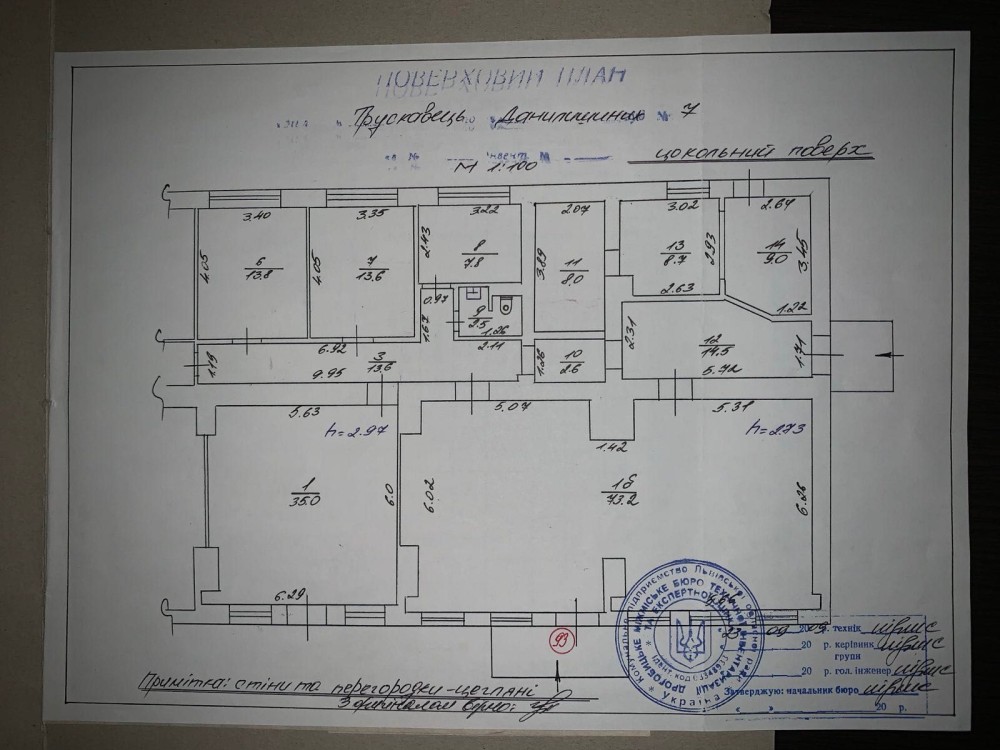 ПОВЕРХОВИЙ ПЛАН
Трускавець Данилишиних № 7
М 1:100
цокольний поверх
3.40
3.35
3.22
2.07
3.02
2.64
4.05
6
13.8
4.05
7
13.6
2.43
8
7.8
3.89
11
8.0
13
8.7
2.93
14
9.0
3.45
0.97
9
2.5
1.26
1.67
2.63
1.22
1.19
6.92
3
13.6
9.95
2.11
1.26
10
2.6
2.31
12
14.5
5.72
1.71
5.63
h=2.97
5.07
1.42
5.31
h=2.73
1
35.0
6.0
6.02
1б
73.2
6.26
6.29
93
Примітка: стіни та перегородки-цегляні
З оригіналом вірно:
Комунальне підприємство Львівської обласної ради
ДРОГОБИЦЬКЕ МІЖМІСЬКЕ БЮРО ТЕХНІЧНОЇ ІНВЕНТАРИЗАЦІЇ
ТА ЕКСПЕРТНОЇ ОЦІНКИ
Україна
23 09 2009р. технік підпис
20 р. керівник групи підпис
20 р. гол. інженер підпис
Затверджую: начальник бюро підпис
« » 20 р.